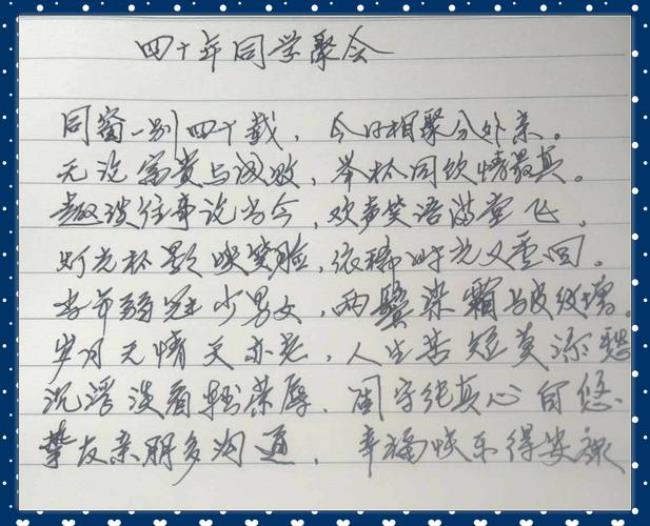 四十年同学聚会
同窗一别四十载，今日相聚分外亲。
无论富贵与成败，举杯同饮情最真。
趣谈往事说当今，欢声笑语满堂飞。
灯光杯影映笑脸，依稀时光又重回。
当年弱冠少男女，两鬓染霜皱纹增。
岁月无情天亦老，人生苦短莫添愁
沉浮淡看轻荣辱，固守纯真心自悠.
挚友亲朋多沟通，幸福快乐得安康